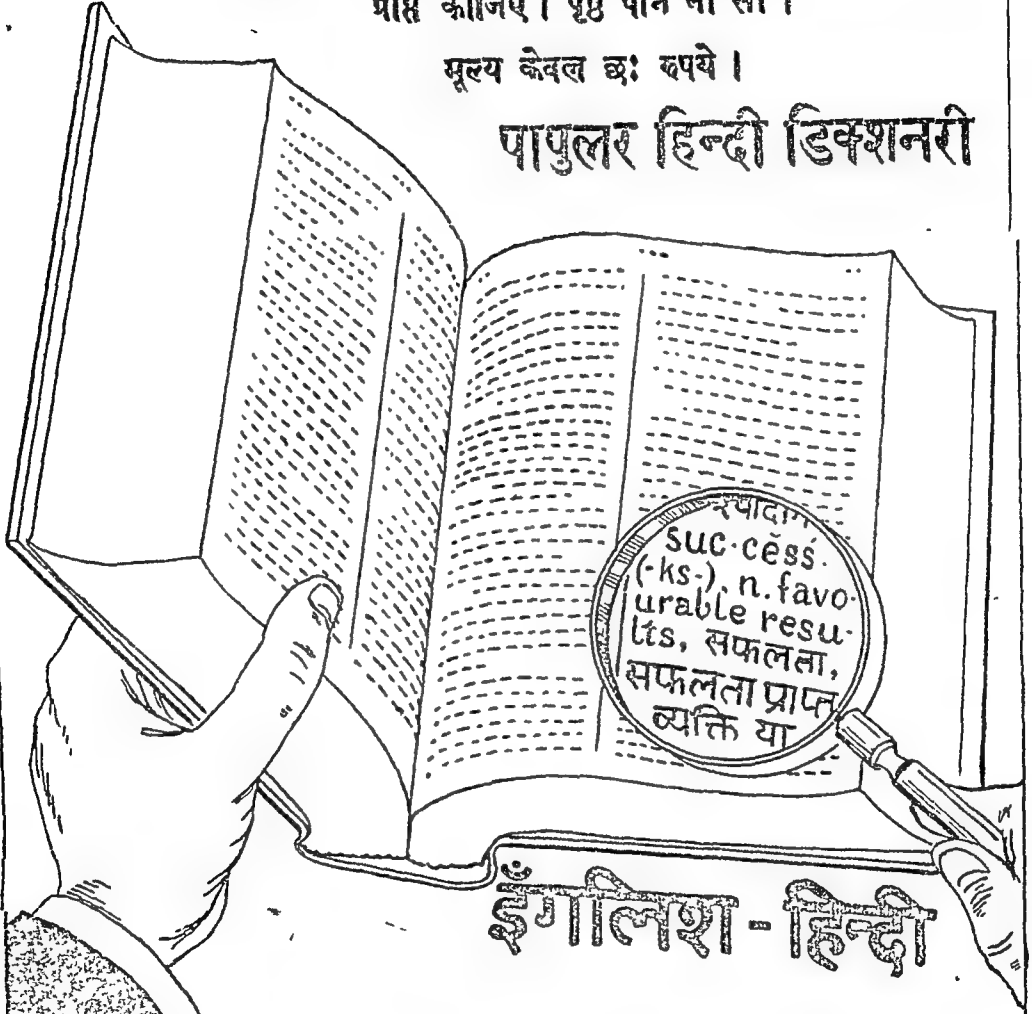 प्राप्त कीजिए। पृष्ठ पाँच सौ सौ।
मूल्य केवल छः रुपये।
पापुलर हिन्दी डिक्शनरी
suc·cĕss.
(-ks-), n. favo-
urable resu-
lts, सफलता,
सफलता प्राप्त
व्यक्ति या
इँगलिश - हिन्दी